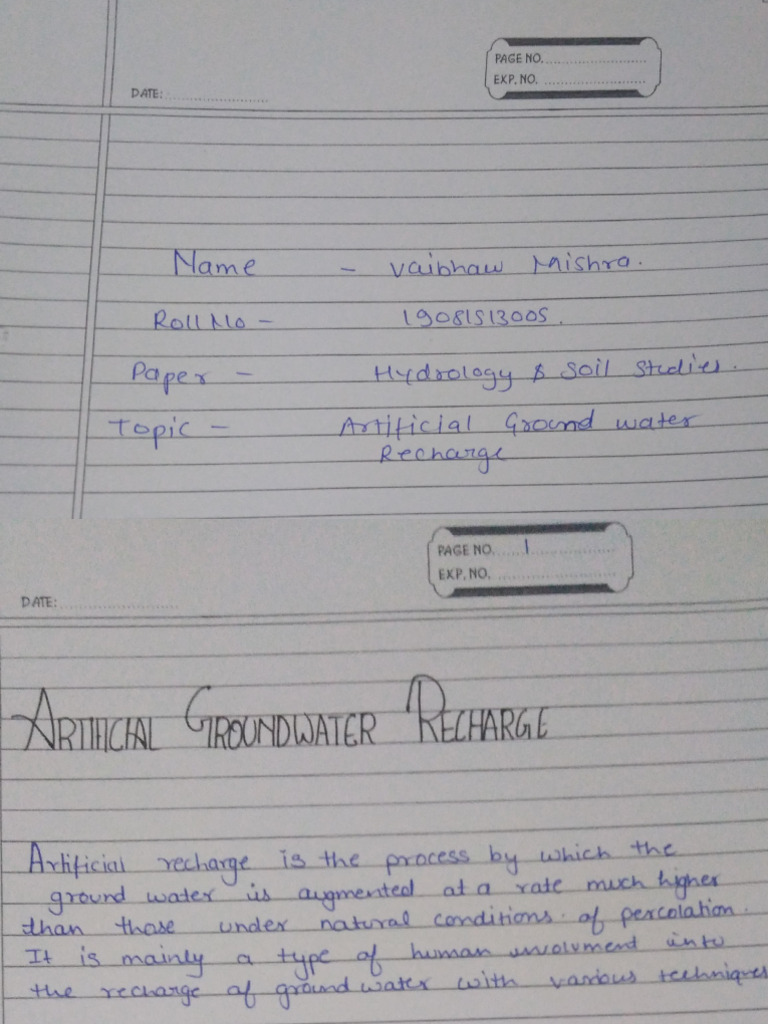 PAGE NO.
EXP. NO.
DATE:
Name - Vaibhaw Mishra.
Roll No - 19081513005.
Paper - Hydrology & Soil Studies.
Topic - Artificial Ground water
Recharge
PAGE NO. 1
EXP. NO.
DATE:
ARTIFICIAL GROUNDWATER RECHARGE
Artificial recharge is the process by which the
ground water is augmented at a rate much higher
than those under natural conditions of percolation.
It is mainly a type of human involvment into
the recharge of ground water with various techniques